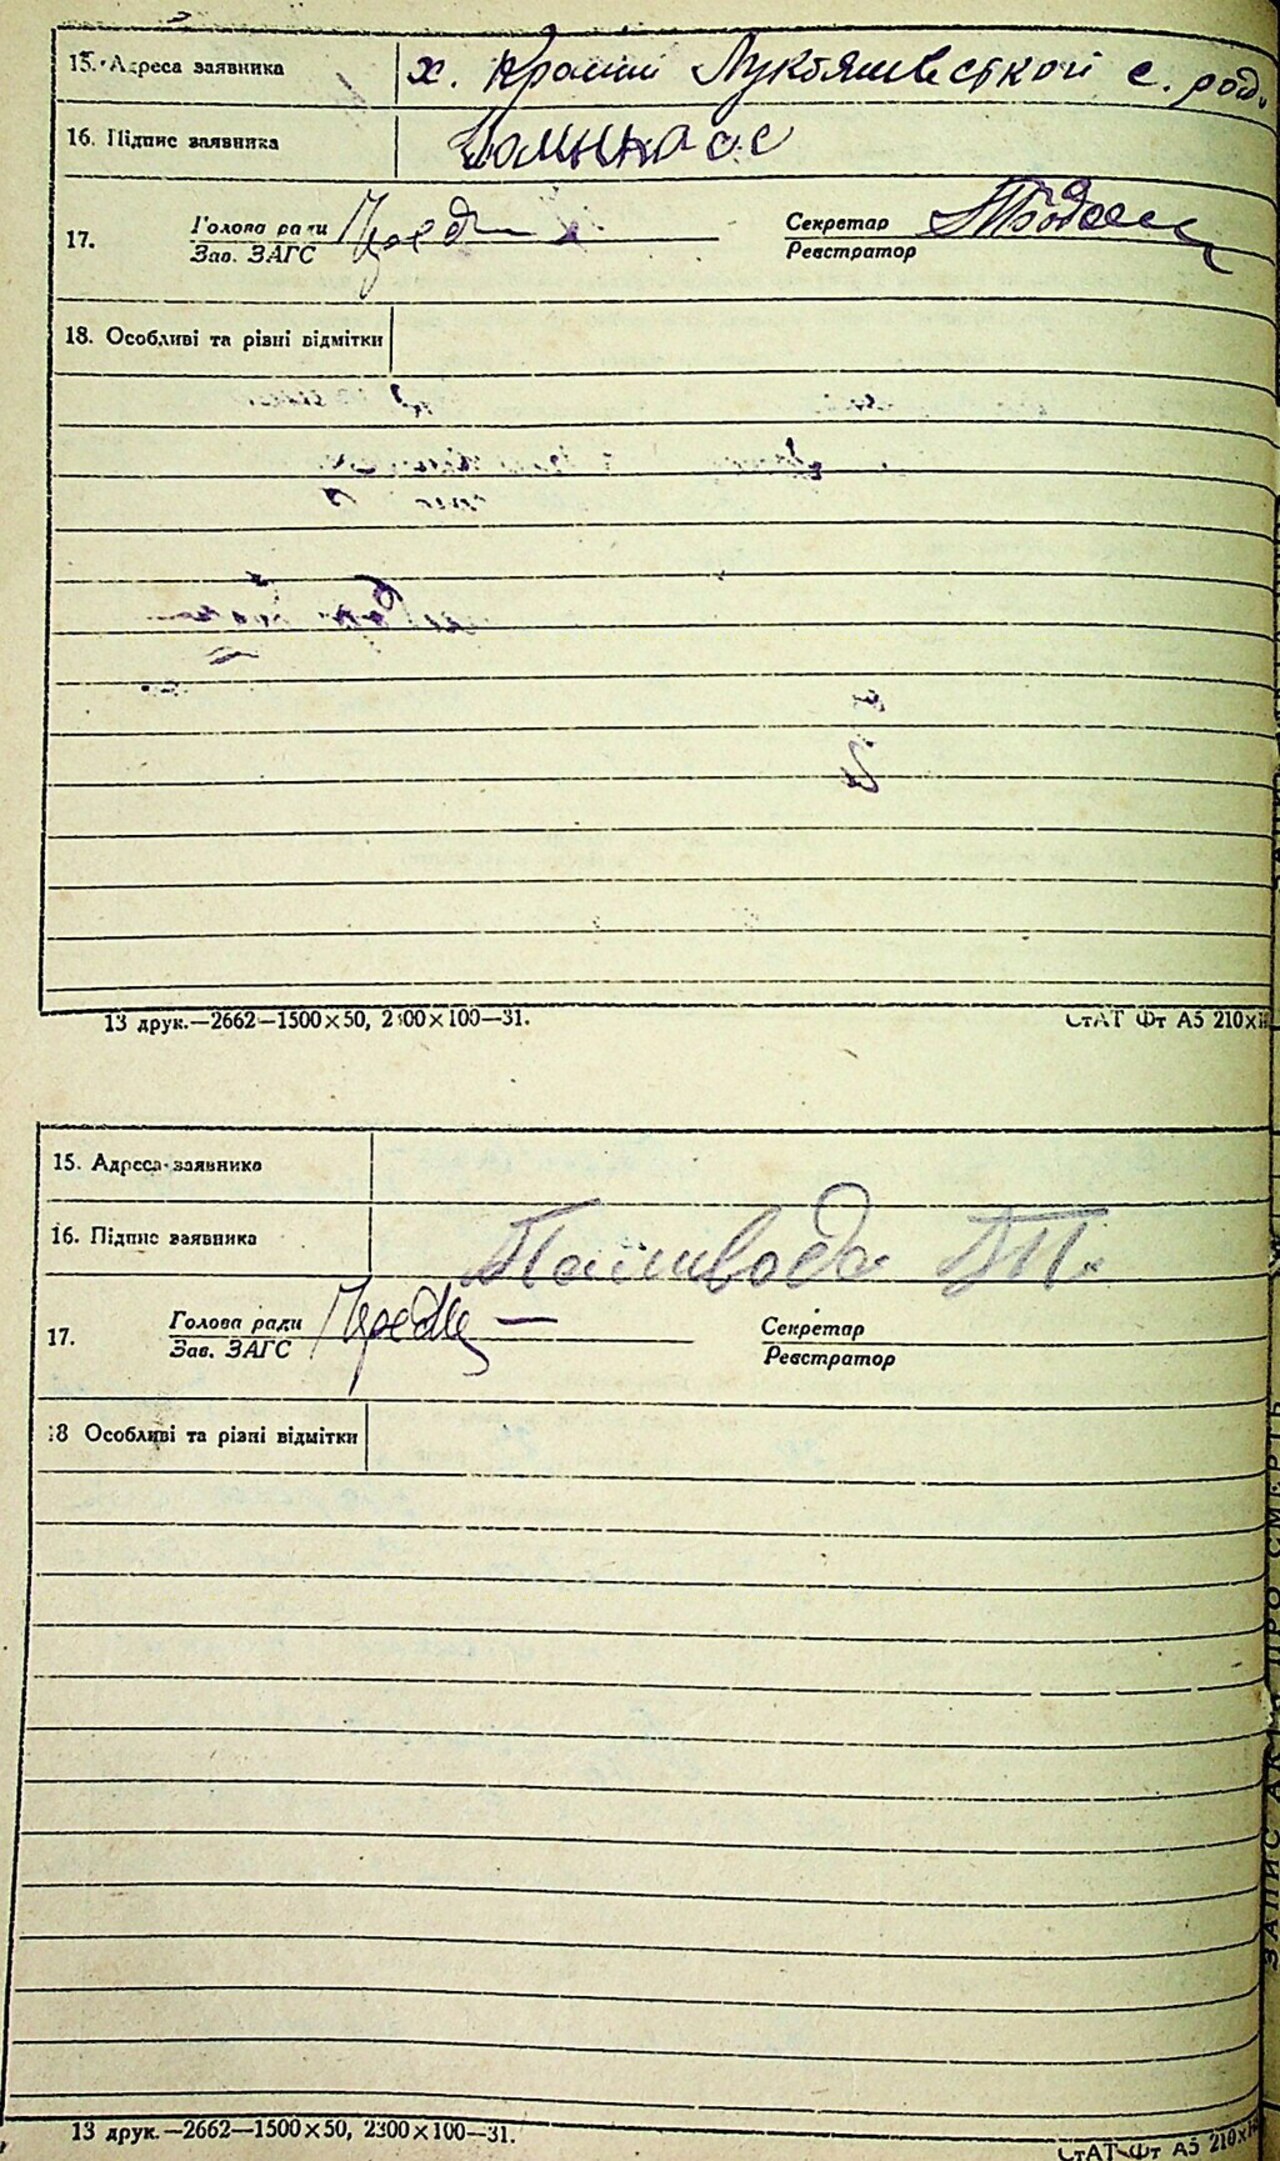 15. Адреса заявника х. Крамки Лукъяшевсткой с. рад.
16. Підпис заявника
17. Голова ради Секретар
Зав. ЗАГС Реєстратор
18. Особливі та різні відмітки
13 друк.—2662—1500×50, 2300×100—31. СтАТ Фт А5 210×
15. Адреса заявника
16. Підпис заявника Пашивода П.
17. Голова ради Секретар
Зав. ЗАГС Реєстратор
18 Особливі та різні відмітки
13 друк.—2662—1500×50, 2300×100—31. СтАТ Фт А5 210×
ЗАПИС АКТУ ПРО СМЕРТЬ